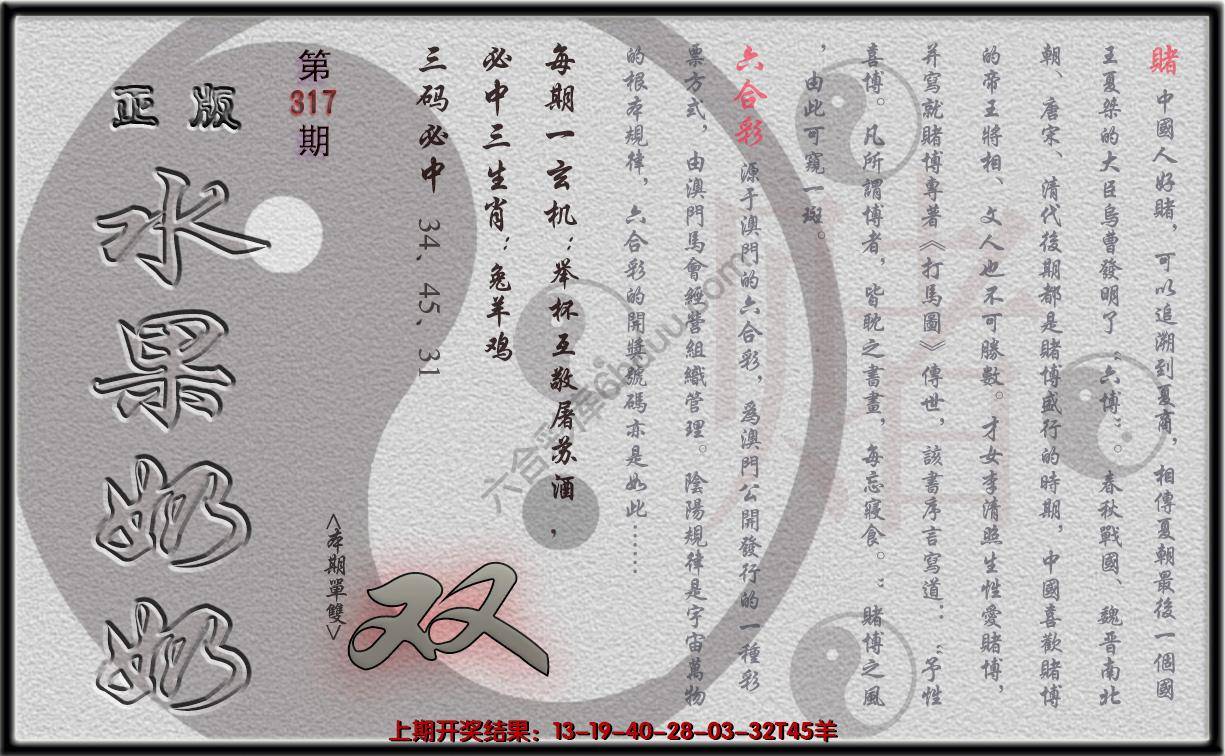 賭 中國人好賭，可以追溯到夏商，相傳夏朝最後一個國
王夏桀的大臣烏曹發明了“六博”。春秋戰國、魏晋南北
朝、唐宋、清代後期都是賭博盛行的時期，中國喜歡賭博
的帝王將相、文人也不可勝數。才女李清照生性愛賭博，
并寫就賭博專著《打馬圖》傳世，該書序言寫道：“予性
喜博。凡所謂博者，皆耽之書畫，每忘寢食。”賭博之風
，由此可窺一斑。
六合彩 源于澳門的六合彩，爲澳門公開發行的一種彩
票方式，由澳門馬會經營組織管理。陰陽規律是宇宙萬物
的根本規律，六合彩的開獎號碼亦是如此……
每期一玄机：举杯互敬屠苏酒，
必中三生肖：兔羊鸡
三码必中 34、45、31
第317期
<本期單雙>
双
正版
水果奶奶
上期开奖结果：13-19-40-28-03-32T45羊